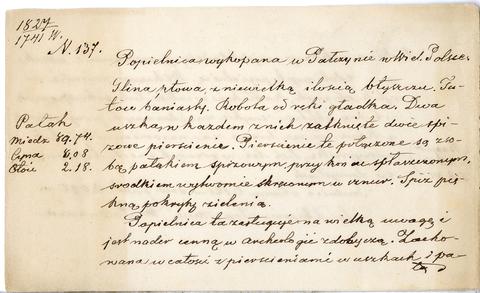 1827
1741 W.
N. 137.
Popielnica wykopana w Palczynie w Wiel. Polsce.
Glina płowa, z niewielką ilością błyszczu. Tu-
łów baniasty. Robota od ręki gładka. Dwa
uszka, w każdem z nich zatknięte dwie spi-
żowe pierścienie. Pierścienie te połączone są z so-
bą pałąkiem spiżowym, przy końcu spłaszczonym,
środkiem wytwornie skręconym w sznur. Spiż pię-
kną pokryty zielenią.
Pałąk
Miedź 89.74.
Cyna 8.08
Ołów 2.18.
Popielnica ta zasługuje na wielką uwagę i
jest nader cenną w archeologii zdobyczą. Zacho-
wana w całości z pierścieniami w uszkach i pa-